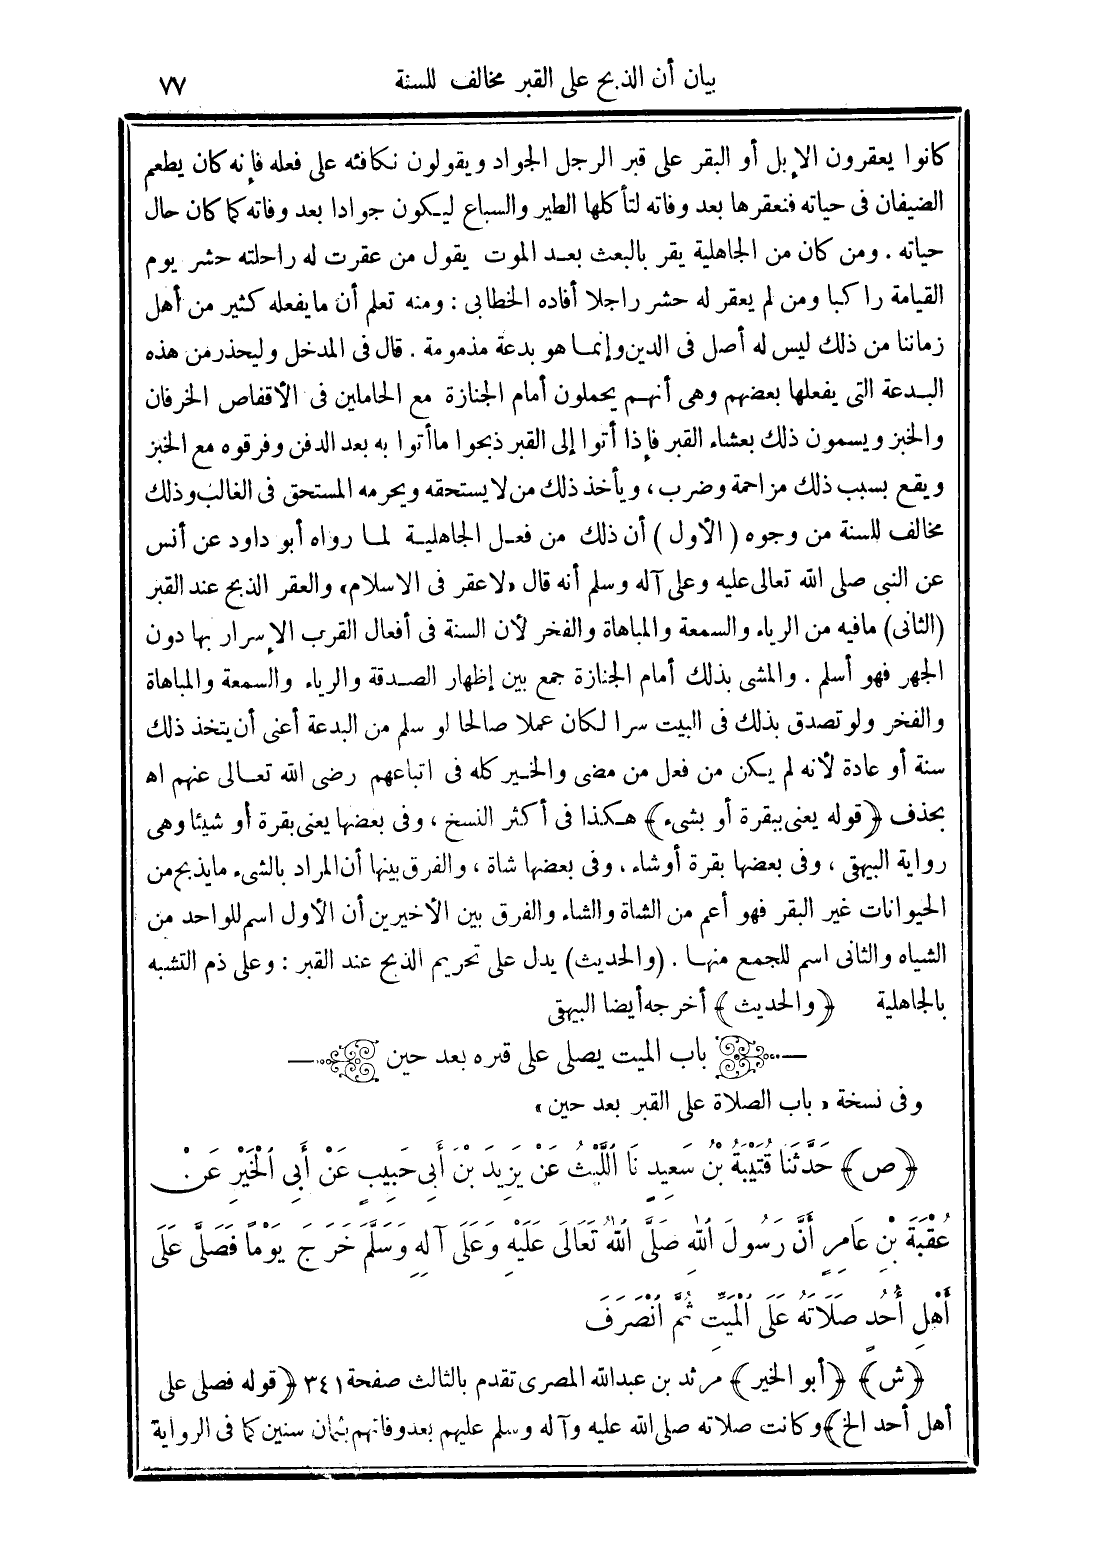 بيان أن الذبح على القبر مخالف للسنة ٧٧
كانوا يعقرون الإبل أو البقر على قبر الرجل الجواد ويقولون نكافئه على فعله فإنه كان يطعم
الضيفان فى حياته فنعقرها بعد وفاته لتأكلها الطير والسباع ليكون جوادا بعد وفاته كما كان حال
حياته . ومن كان من الجاهلية يقر بالبعث بعد الموت يقول من عقرت له راحلته حشر يوم
القيامة راكبا ومن لم يعقر له حشر راجلا أفاده الخطابى : ومنه تعلم أن مايفعله كثير من أهل
زماننا من ذلك ليس له أصل فى الدين وإنما هو بدعة مذمومة . قال فى المدخل وليحذر من هذه
البدعة التى يفعلها بعضهم وهى أنهم يحملون أمام الجنازة مع الحاملين فى الأقفاص الخرفان
والخبز ويسمون ذلك بعشاء القبر فإذا أتوا إلى القبر ذبحوا ماأتوا به بعد الدفن وفرقوه مع الخبز
ويقع بسبب ذلك مزاحمة وضرب ، ويأخذ ذلك من لايستحقه ويحرمه المستحق فى الغالب وذلك
مخالف للسنة من وجوه (الأول) أن ذلك من فعل الجاهلية لما رواه أبو داود عن أنس
عن النبى صلى الله تعالى عليه وعلى آله وسلم أنه قال «لاعقر فى الاسلام» والعقر الذبح عند القبر
(الثانى) مافيه من الرياء والسمعة والمباهاة والفخر لأن السنة فى أفعال القرب الإسرار بها دون
الجهر فهو أسلم . والمشى بذلك أمام الجنازة جمع بين إظهار الصدقة والرياء والسمعة والمباهاة
والفخر ولو تصدق بذلك فى البيت سرا لكان عملا صالحا لو سلم من البدعة أعنى أن يتخذ ذلك
سنة أو عادة لأنه لم يكن من فعل من مضى والخير كله فى اتباعهم رضى الله تعالى عنهم اه
بحذف ﴿قوله يعنى ببقرة أو بشىء﴾ هكذا فى أكثر النسخ ، وفى بعضها يعنى بقرة أو شيئا وهى
رواية البيهقى ، وفى بعضها بقرة أوشاء . وفى بعضها شاة ، والفرق بينها أن المراد بالشىء مايذبح من
الحيوانات غير البقر فهو أعم من الشاة والشاء والفرق بين الأخيرين أن الأول اسم للواحد من
الشياه والثانى اسم للجمع منها . (والحديث) يدل على تحريم الذبح عند القبر : وعلى ذم التشبه
بالجاهلية ﴿والحديث﴾ أخرجه أيضا البيهقى
باب الميت يصلى على قبره بعد حين
وفى نسخة « باب الصلاة على القبر بعد حين »
﴿ص﴾ حَدَّثَنَا قُتَيْبَةُ بْنُ سَعِيدٍ نَا اللَّيْثُ عَنْ يَزِيدَ بْنَ أَبِي حَبِيبٍ عَنْ أَبِي الْخَيْرِ عَنْ
عُقْبَةَ بْنِ عَامِرٍ أَنَّ رَسُولَ اللهِ صَلَّى اللهُ تَعَالَى عَلَيْهِ وَعَلَى آلِهِ وَسَلَّمَ خَرَجَ يَوْمًا فَصَلَّى عَلَى
أَهْلِ أُحُدٍ صَلَاتَهُ عَلَى الْمَيِّتِ ثُمَّ انْصَرَفَ
﴿ش﴾ ﴿أبو الخير﴾ مرثد بن عبدالله المصرى تقدم بالثالث صفحة ٣٤١ ﴿قوله فصلى على
أهل أحد الخ﴾ وكانت صلاته صلى الله عليه وآله وسلم عليهم بعد وفاتهم بثمان سنين كما فى الرواية